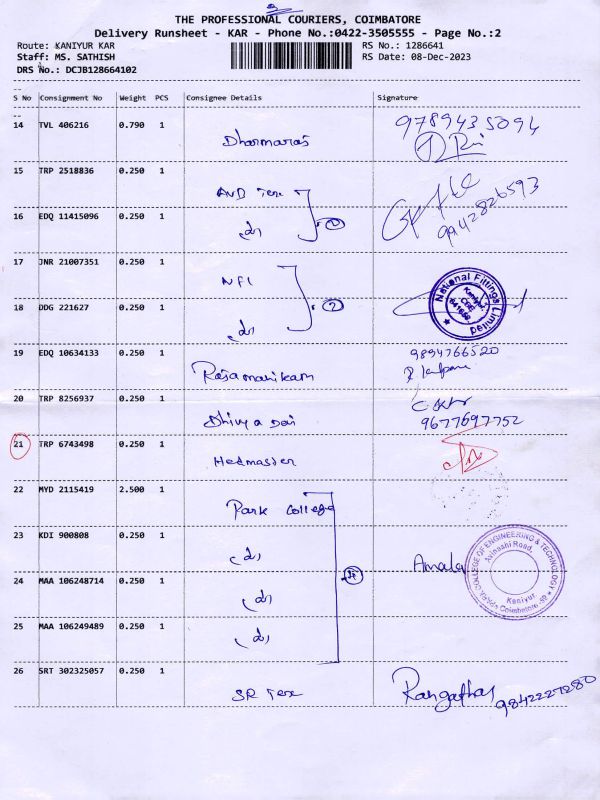 THE PROFESSIONAL COURIERS, COIMBATORE
Delivery Runsheet - KAR - Phone No.:0422-3505555 - Page No.:2
Route: KANIYUR KAR
RS No.: 1286641
Staff: MS. SATHISH
RS Date: 08-Dec-2023
DRS No.: DCJB128664102
S No Consignment No Weight PCS Consignee Details Signature
14 TVL 406216 0.790 1 Dharmaraj 9789435094
15 TRP 2518836 0.250 1 AND Tex
16 EDQ 11415096 0.250 1 (d) 2 9942826593
17 JNR 21007351 0.250 1 NFL
National Fittings Limited
Kaniyur
CBE
18 DDG 221627 0.250 1 (d) 2
19 EDQ 10634133 0.250 1 Rajamanikam 9894766520
20 TRP 8256937 0.250 1 Dhivya 9677697752
21 TRP 6743498 0.250 1 Hedmaster
22 MYD 2115419 2.500 1 Park College
23 KDI 900808 0.250 1 (d) Amala
COLLEGE OF ENGINEERING & TECHNOLOGY
Avinashi Road,
Kaniyur
Coimbatore
24 MAA 106248714 0.250 1 (d) 4
25 MAA 106249489 0.250 1 (d)
26 SRT 302325057 0.250 1 SR Tex 9842227280